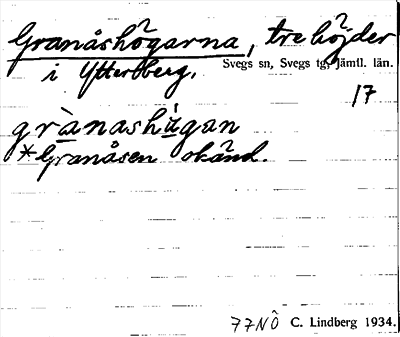 Granåshögarna, tre höjder
i Ytterberg. Svegs sn, Svegs tg, Jämtl. län.
17
grànashúgan
*Granåsen okänd.
77NÖ C. Lindberg 1934.